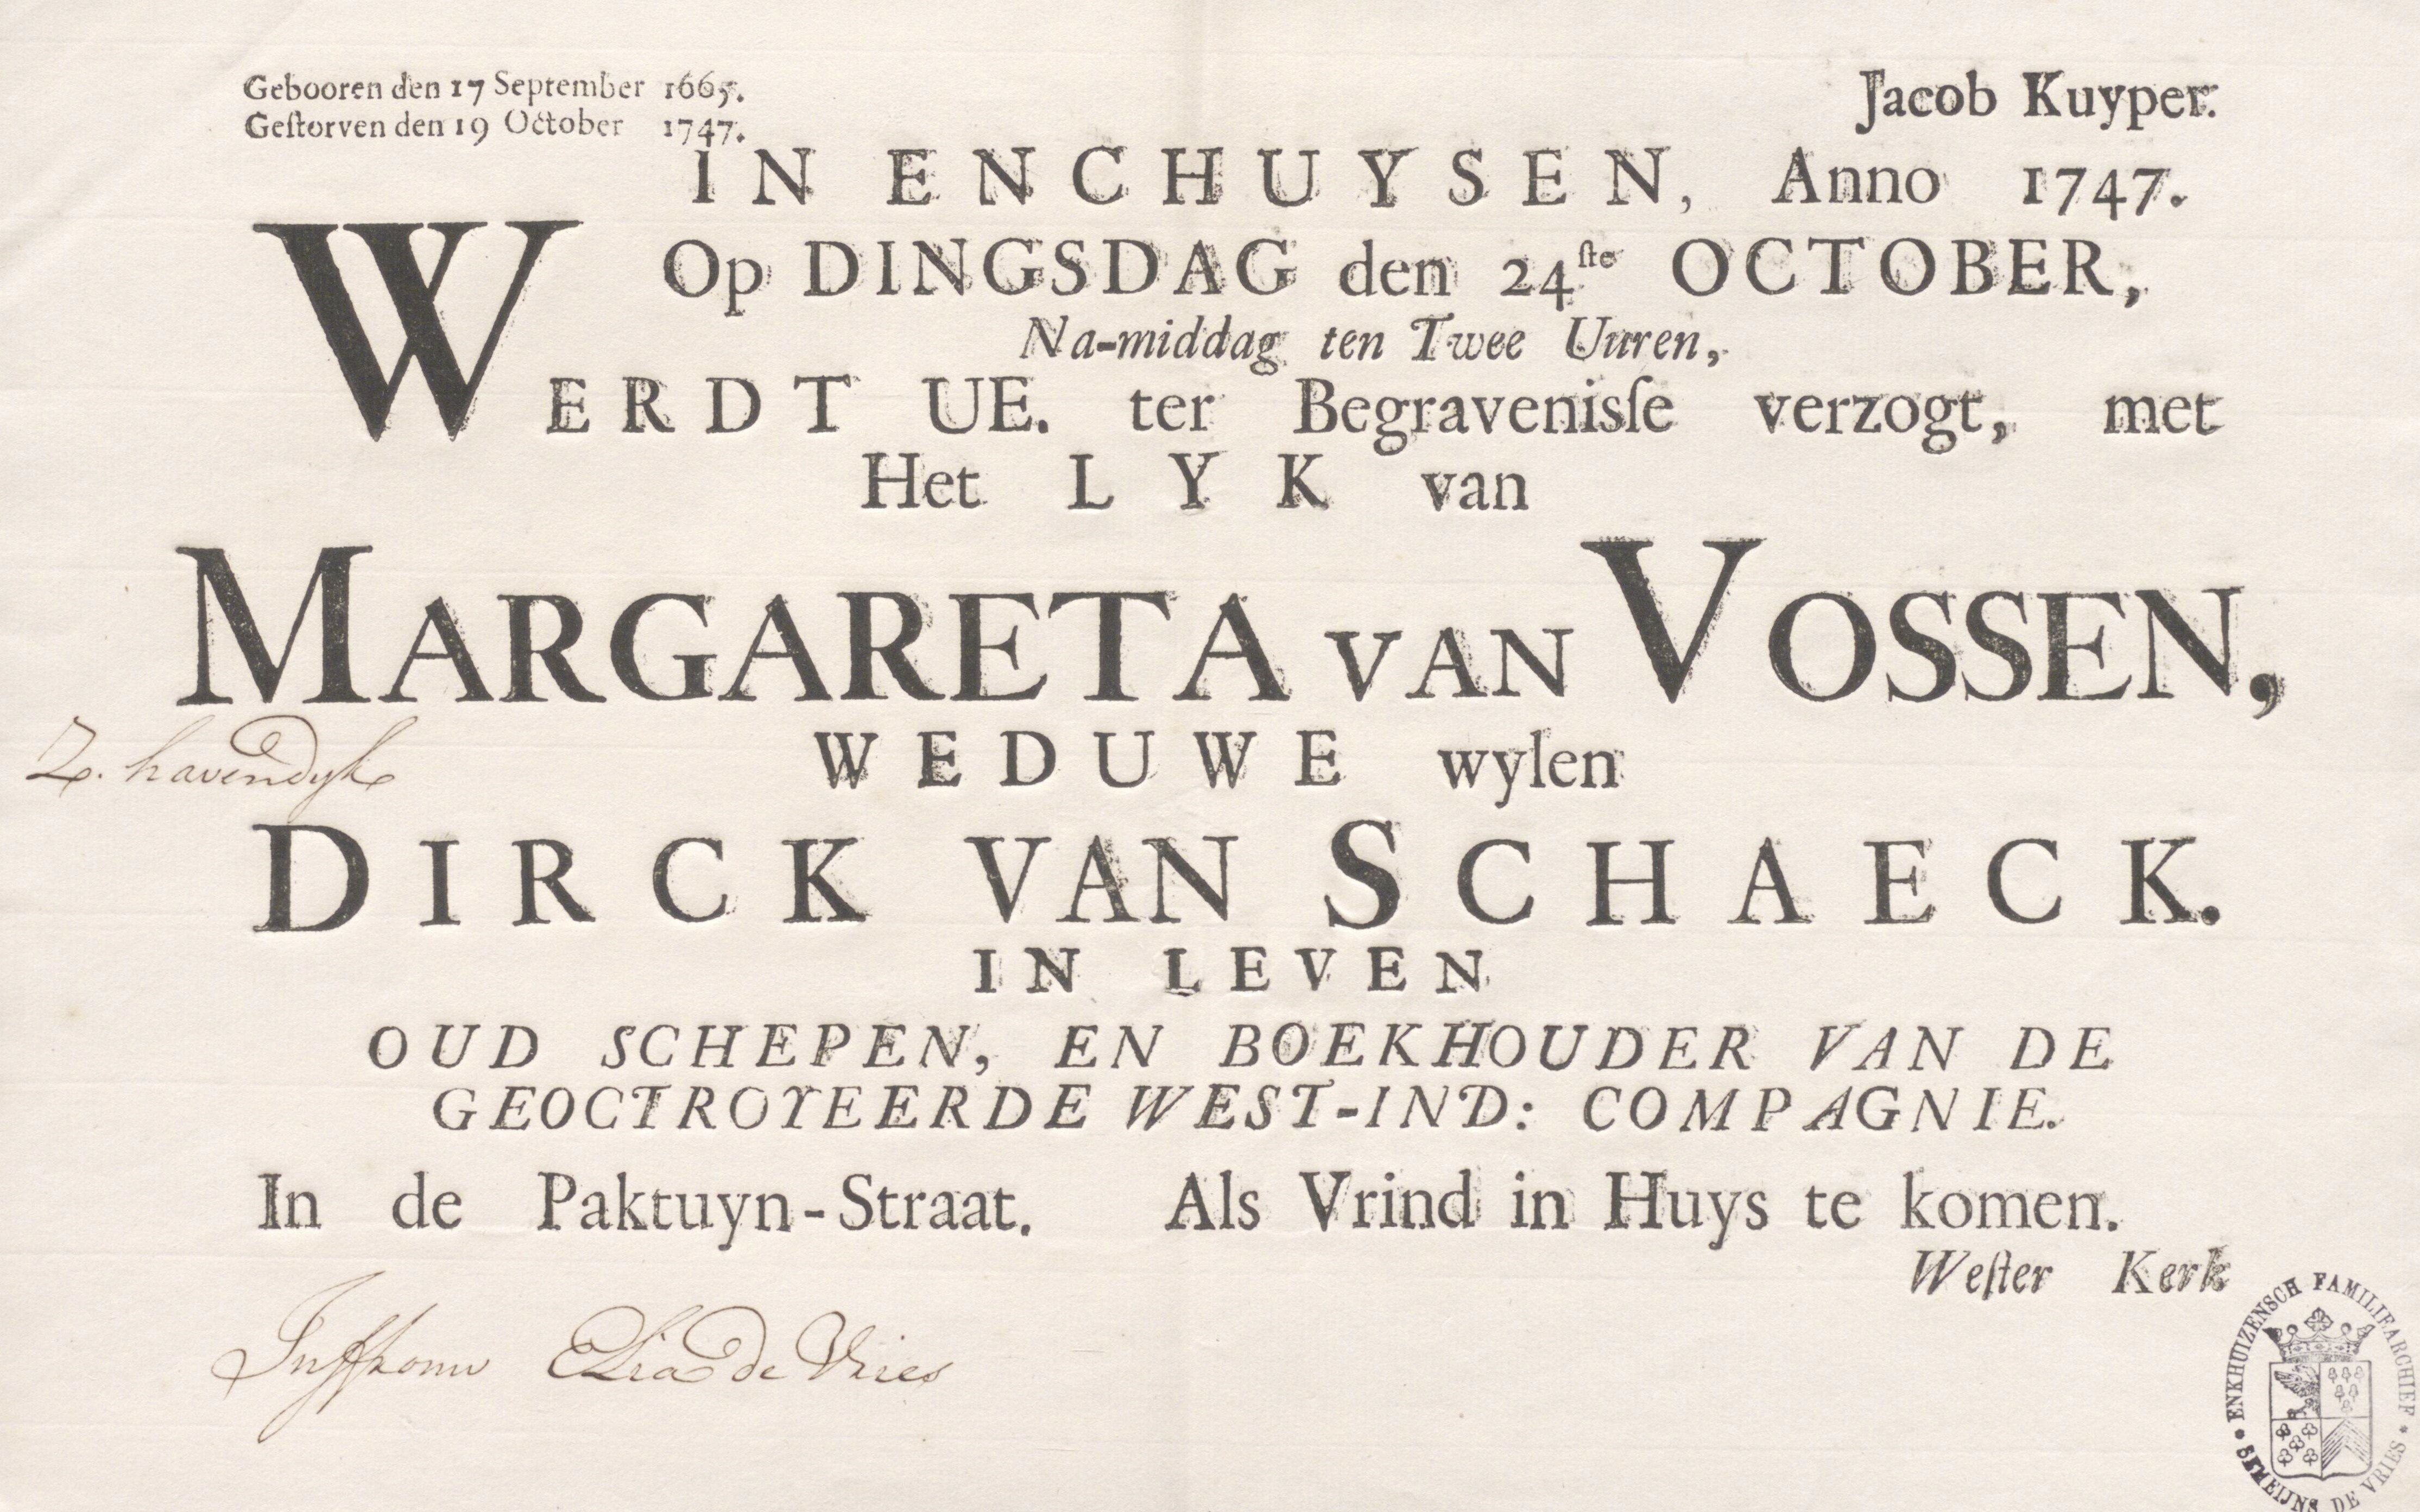 Gebooren den 17 September 1665.
Geſtorven den 19 October 1747.
Jacob Kuyper.
IN ENCHUYSEN, Anno 1747.
Op DINGSDAG den 24ſte OCTOBER,
Na-middag ten Twee Uuren,
WERDT UE. ter Begravenisſe verzogt, met
Het LYK van
MARGARETA VAN VOSSEN,
Z. havendyk
WEDUWE wylen
DIRCK VAN SCHAECK.
IN LEVEN
OUD SCHEPEN, EN BOEKHOUDER VAN DE
GEOCTROYEERDE WEST-IND: COMPAGNIE.
In de Paktuyn-Straat. Als Vrind in Huys te komen.
Weſter Kerk
Juffrouw de Vries
ENKHUIZENSCH FAMILIEARCHIEF
SEMEIJNS DE VRIES